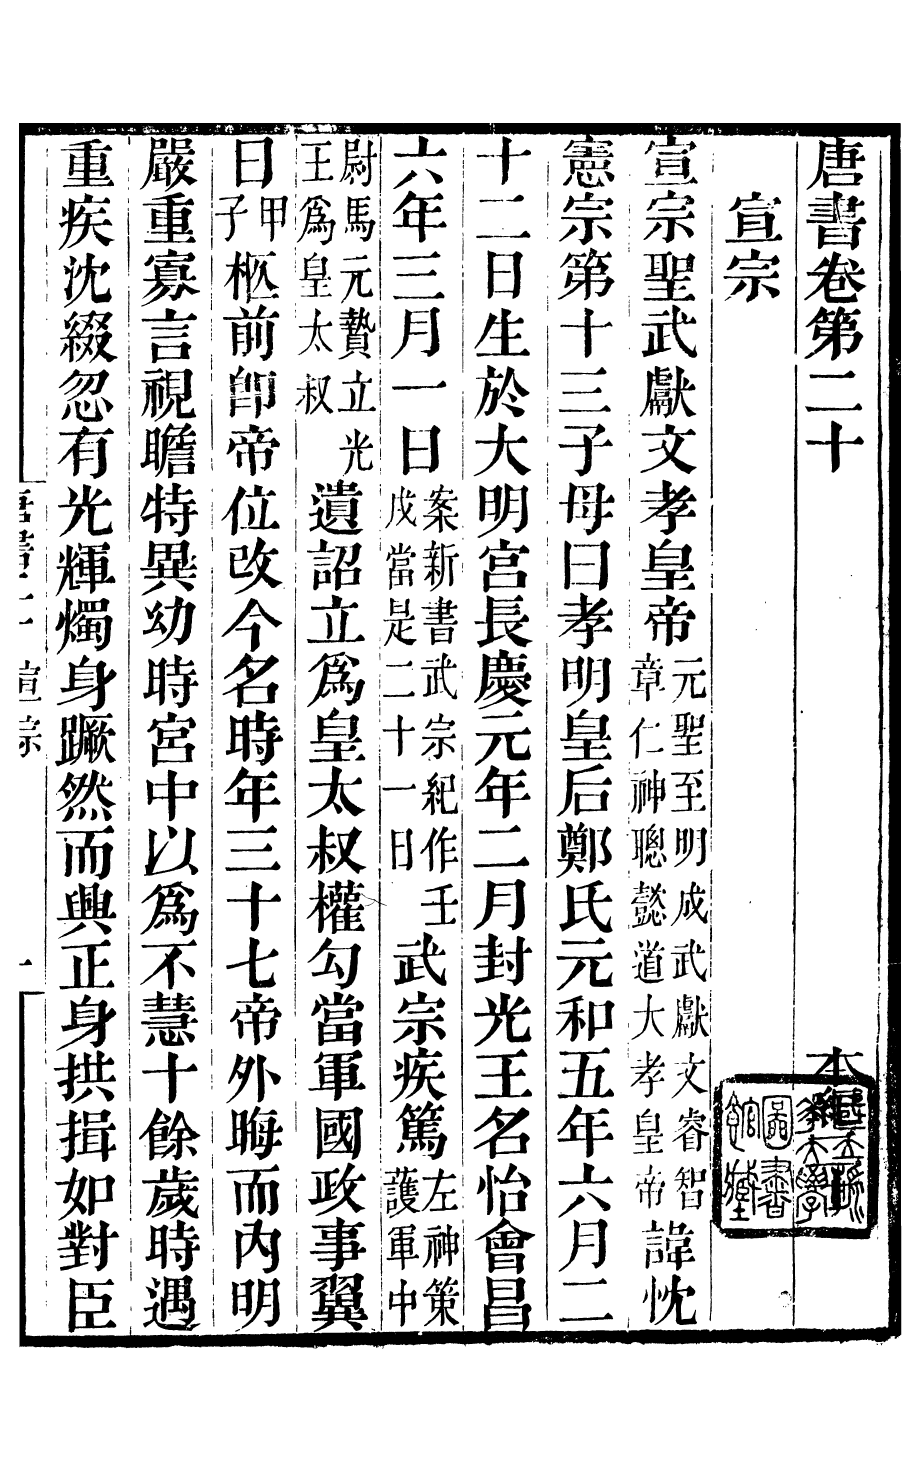 唐書卷第二十 本
宣宗
宣宗聖武獻文孝皇帝元聖至明成武獻文睿智章仁神聰懿道大孝皇帝諱忱
憲宗第十三子母曰孝明皇后鄭氏元和五年六月二
十二日生於大明宮長慶元年二月封光王名怡會昌
六年三月一日案新書武宗紀作壬戌當是二十一日武宗疾篤左神策護軍中
尉馬元贄立光王爲皇太叔遺詔立爲皇太叔權勾當軍國政事翼
日甲子柩前卽帝位改今名時年三十七帝外晦而內明
嚴重寡言視瞻特異幼時宮中以爲不慧十餘歲時遇
重疾沈綴忽有光輝燭身蹶然而興正身拱揖如對臣